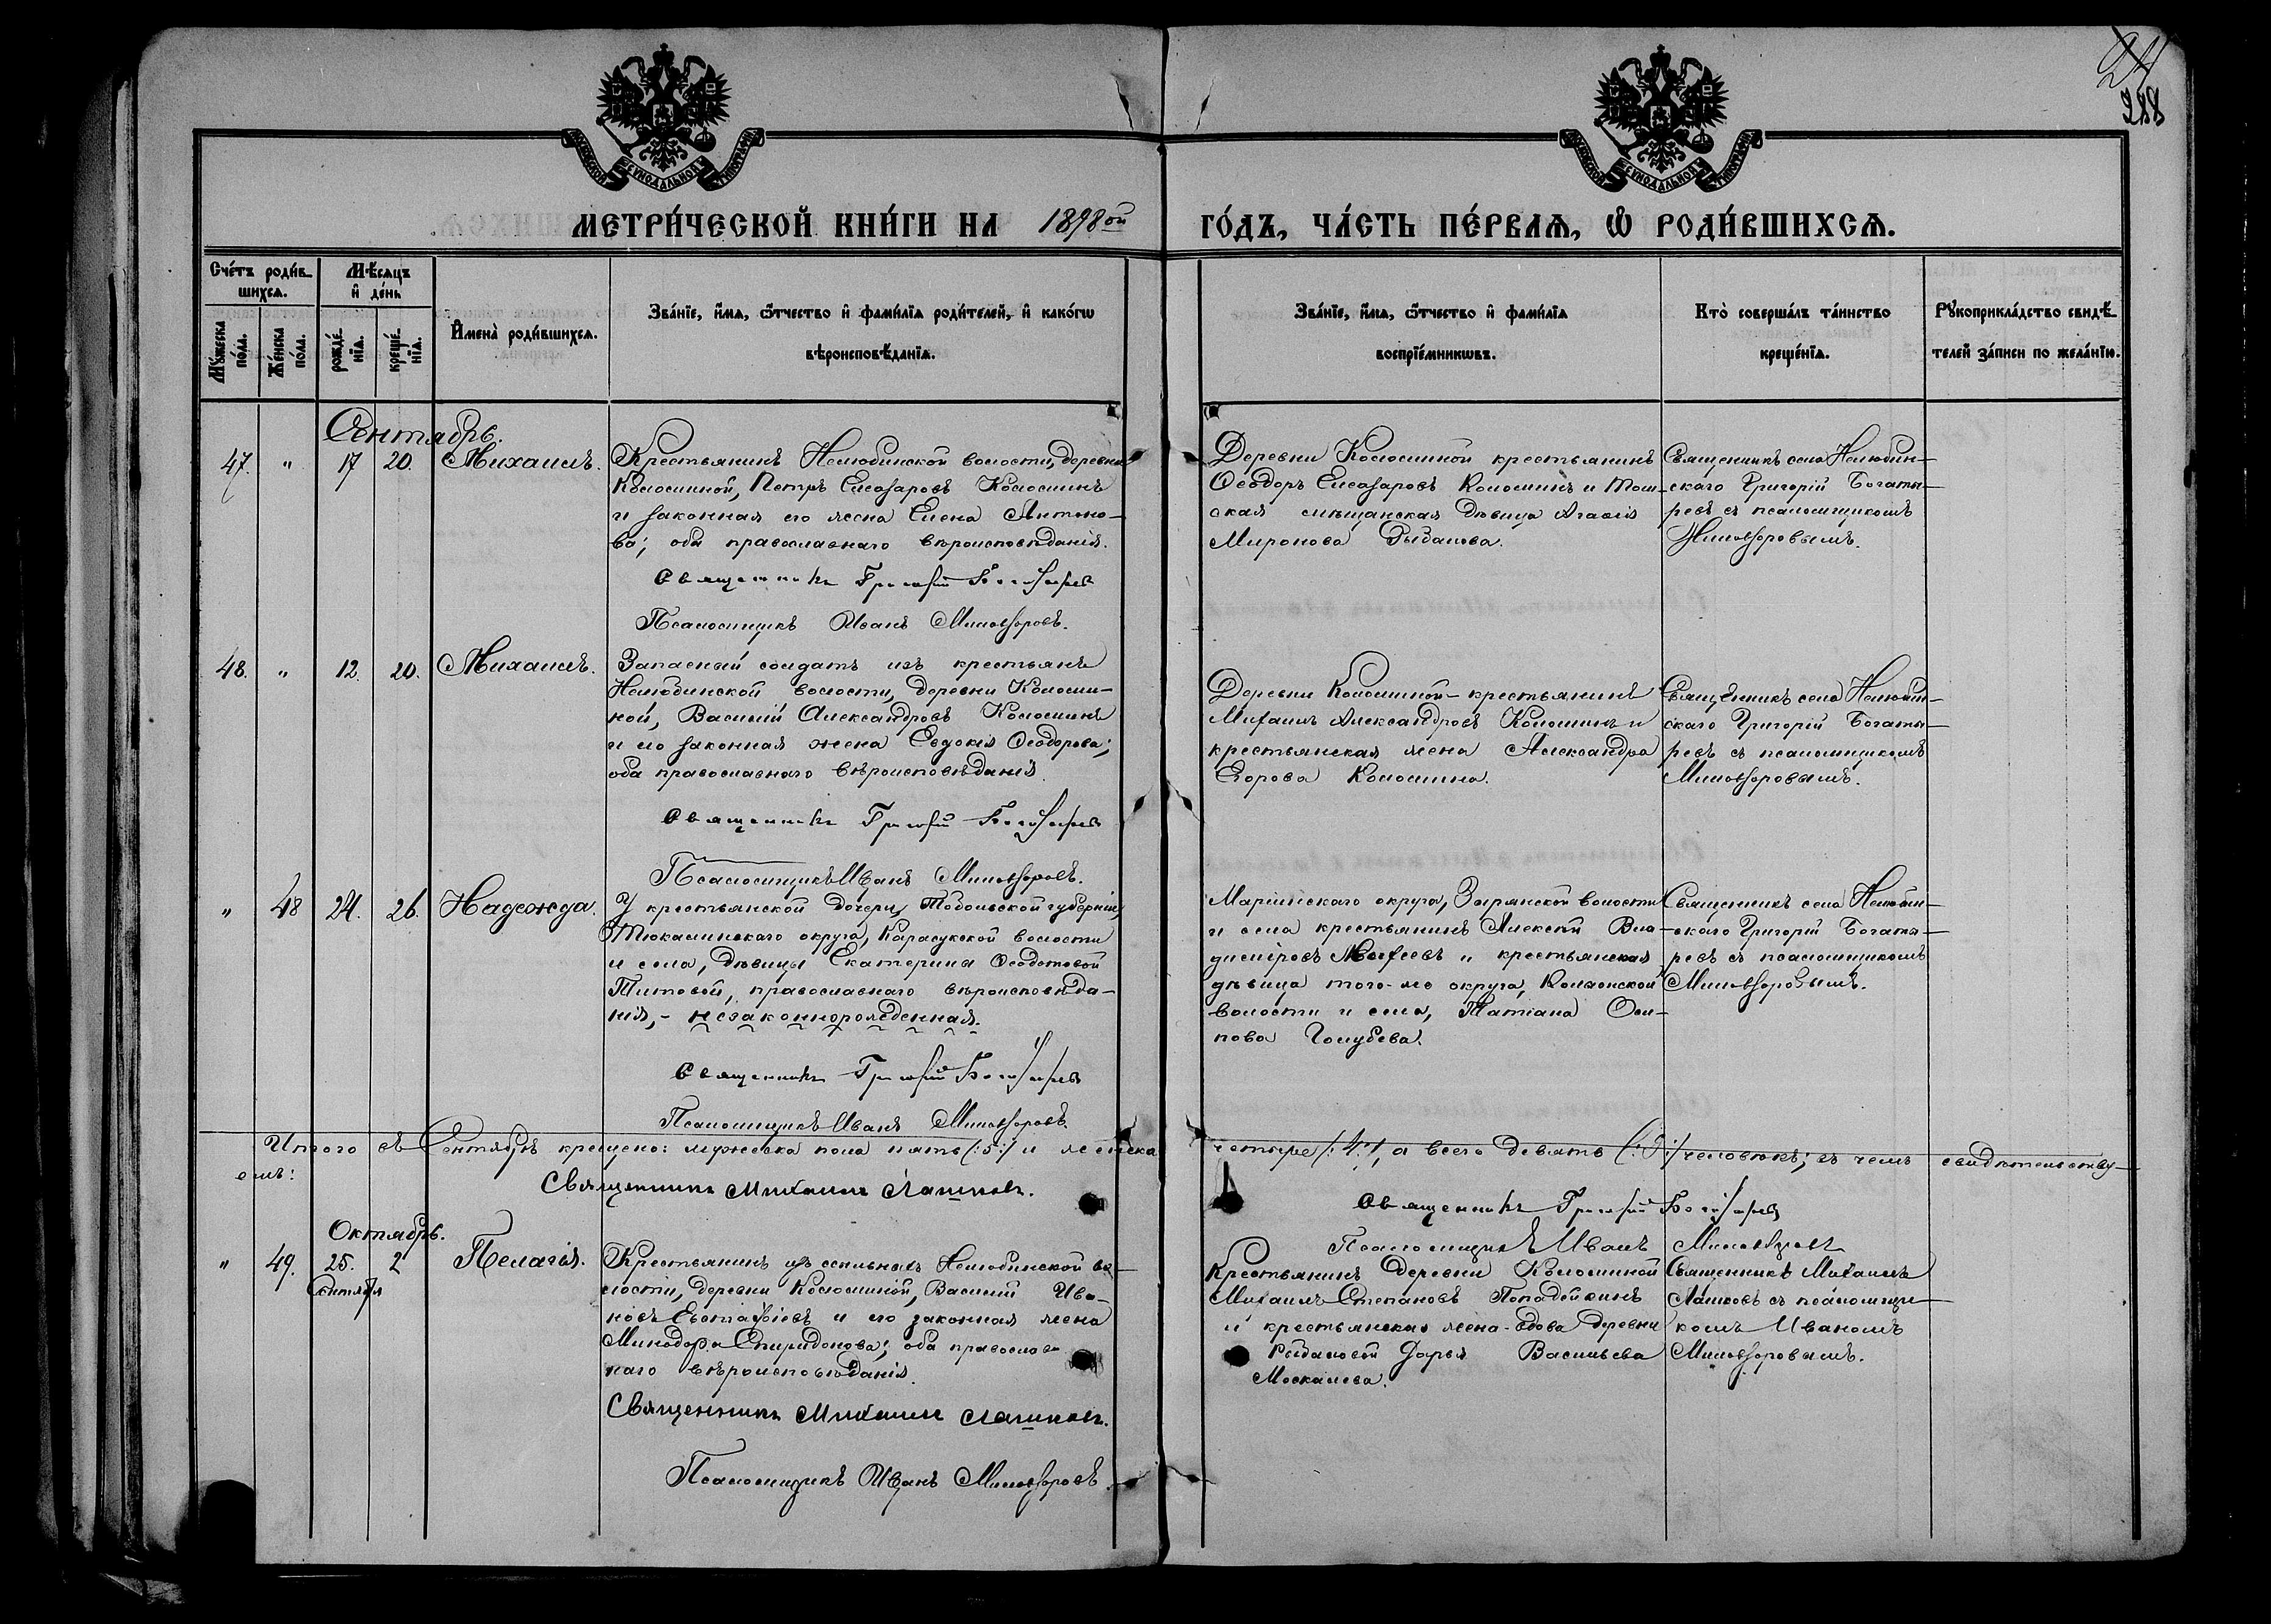 24
288
МОСКОВСКОЙ СѴНОДАЛЬНОЙ ТИПОГРАФІИ
МОСКОВСКОЙ СѴНОДАЛЬНОЙ ТИПОГРАФІИ
МЕТРИ́ЧЕСКОЙ КНИ́ГИ НА 1898ой
ГО́ДЪ, ЧА́СТЬ ПЕ́РВАѦ, Ѽ РОДИ́ВШИХСѦ.
Сче́тъ роди́в-
шихсѧ.
Мѣ́сѧцъ
и҆ де́нь
Мꙋ́жеска
по́ла.
Же́нска
по́ла.
рожде́-
нїѧ.
креще́-
нїѧ.
И҆мена̀ роди́вшихсѧ.
Зва́нїе, и҆́мѧ, ѻ҆́тчество и҆ фами́лїѧ роди́телей, и҆ како́гѡ
вѣроисповѣ́данїѧ.
Зва́нїе, и҆́мѧ, ѻ҆́тчество и҆ фами́лїѧ
воспрїе́мникѡвъ.
Кто̀ соверша́лъ та́инство
креще́нїѧ.
Рꙋкоприкла́дство свидѣ́-
телей за́писи по жела́нїю.
Сентябрь.
47. " 17 20. Михаилъ.
Крестьянинъ Нелюбинской волости, деревни
Коломиной, Петръ Елеазаровъ Коломинъ
и законная его жена Елена Антоно-
ва; оба православнаго вѣроисповѣданія.
Священникъ Григорій Богатыревъ
Псаломщикъ Иванъ Миловзоровъ.
Деревни Коломиной крестьянинъ
Ѳеодоръ Елеазаровъ Коломинъ и Том-
ская мѣщанская дѣвица Агаѳія
Миронова Рыбалова.
Священникъ села Нелюбин-
скаго Григорій Богаты-
ревъ съ псаломщикомъ
Миловзоровымъ.
48. " 12. 20. Михаилъ.
Запасный солдатъ изъ крестьянъ
Нелюбинской волости, деревни Коломи-
ной, Василій Александровъ Коломинъ
и его законная жена Евдокія Ѳеодорова;
оба православнаго вѣроисповѣданія.
Священникъ Григорій Богатыревъ
Псаломщикъ Иванъ Миловзоровъ.
Деревни Коломиной крестьянинъ
Михаилъ Александровъ Коломинъ и
крестьянская жена Александра
Егорова Коломина.
Священникъ села Нелюбин-
скаго Григорій Богаты-
ревъ съ псаломщикомъ
Миловзоровымъ.
" 48 24. 26. Надежда.
У крестьянской дочери, Тобольской губерніи,
Тюкалинскаго округа, Карасукской волости
и села, дѣвицы Екатерины Ѳеодотовой
Титовой, православнаго вѣроисповѣда-
нія, - незаконнорожденная.
Священникъ Григорій Богатыревъ
Псаломщикъ Иванъ Миловзоровъ.
Маріинскаго округа, Зырянской волости
и села крестьянинъ Алексѣй Вла-
диміровъ Моисеевъ и крестьянская
дѣвица того-же округа, Колыонской
волости и села, Татіана Оси-
пова Голубева.
Священникъ села Нелюбин-
скаго Григорій Богаты-
ревъ съ псаломщикомъ
Миловзоровымъ.
Итого въ Сентябрѣ крещено: мужеска пола пять /:5:/ и женска
четыре /:4:/, а всего девять /:9:/ человѣкъ; въ чемъ свидѣтельству-
емъ:
Священникъ Михаилъ Лашковъ.
Священникъ Григорій Богатыревъ
Псаломщикъ Иванъ Миловзоровъ
Октябрь.
" 49. 25. 2 Пелагія.
Сентября
Крестьянинъ изъ ссыльныхъ Нелюбинской во-
лости, деревни Коломиной, Василій Ива-
новъ Евстафіевъ и его законная жена
Минодора Спиридонова; оба православ-
наго вѣроисповѣданія.
Священникъ Михаилъ Лашковъ.
Псаломщикъ Иванъ Миловзоровъ.
Крестьянинъ деревни Коломиной
Михаилъ Степановъ Попадейкинъ
и крестьянская жена-вдова деревни
Рыбаловой Дарья Васильева
Москалева.
Священникъ Михаилъ
Лашковъ съ псаломщи-
комъ Иваномъ
Миловзоровымъ.